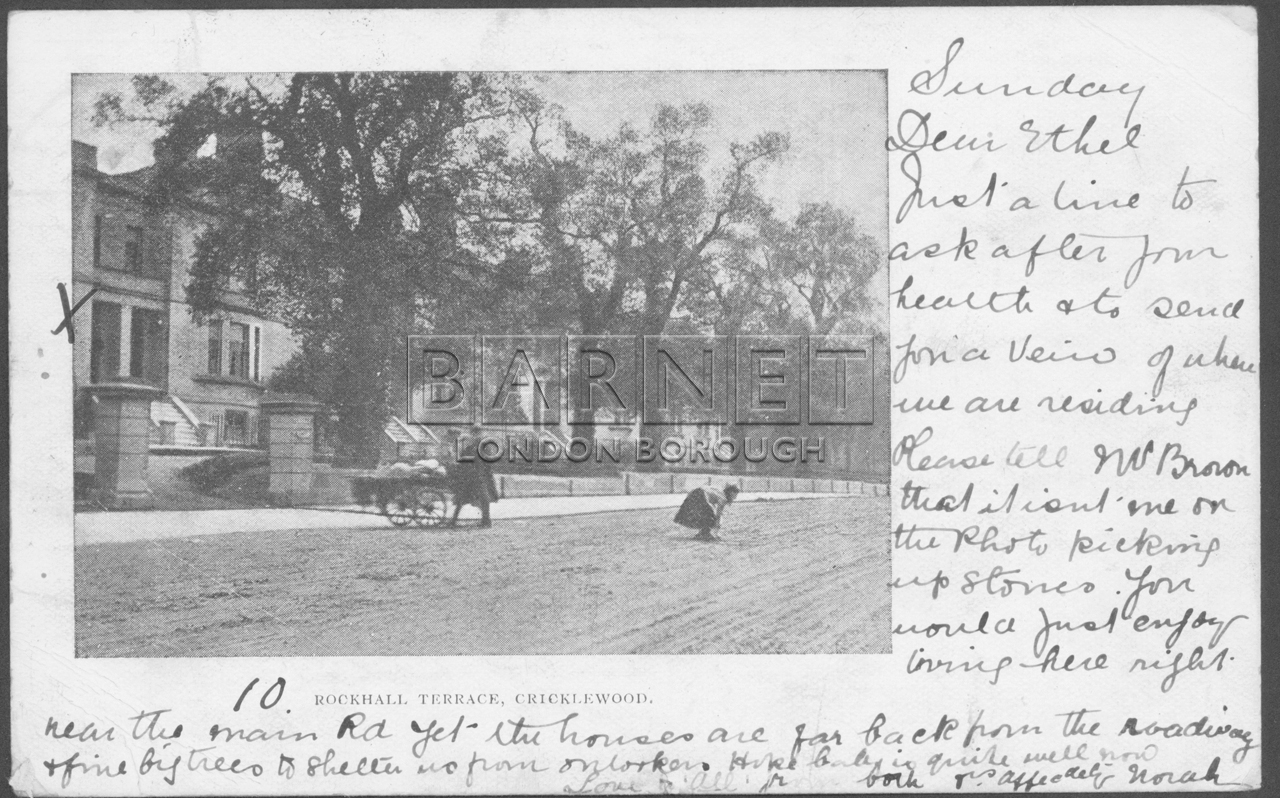 Sunday
Dear Ethel
Just a line to
ask after your
health & to send
you a View of where
we are residing
Please tell Mr Brown
that it isnt me on
the Photo picking
up stones. You
would just enjoy
living here right
X
BARNET
LONDON BOROUGH
10.
ROCKHALL TERRACE, CRICKLEWOOD.
near the main Rd yet the houses are far back from the roadway
& fine big trees to shelter us from onlookers Hope baby is quite well now
Love to All fr both yrs affectely Norah